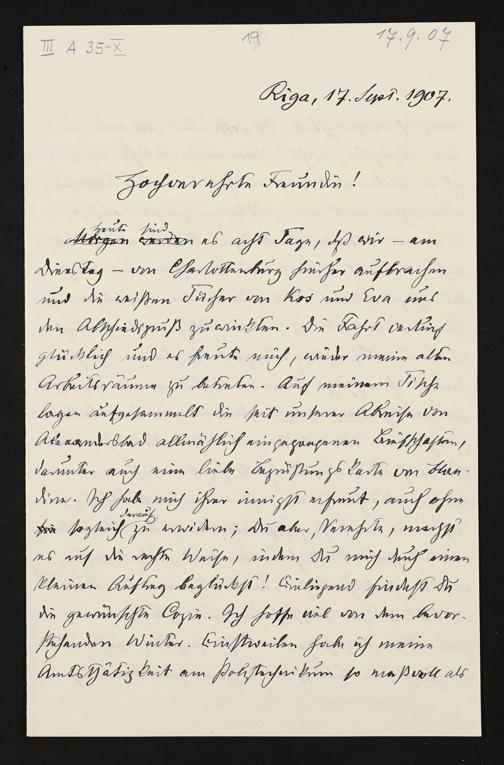 III A 35-X
19
17.9.07
Riga, 17. Sept. 1907.
Hochverehrte Freundin!
heute sind
Morgen werden es acht Tage, daß wir – am
Dienstag – von Charlottenburg hierher aufbrachen
und die weißen Tücher von Kos und Eva uns
den Abschiedsgruß zuwinkten. Die Fahrt verlief
glücklich und es freute mich, wieder meine alten
Arbeitsräume zu betreten. Auf meinem Tische
lagen aufgesammelt die seit unserer Abreise von
Alexandersbad allmählich eingegangenen Briefschaften,
darunter auch eine liebe Begrüßungskarte von
Ich habe mich ihrer innigst erfreut, auch ohne
sogleich darauf zu erwidern; Du aber, Verehrte, machst
es auf die rechte Weise, indem Du mich durch einen
kleinen Auftrag beglückst! Einliegend findest Du
die gewünschte Copie. Ich hoffe viel von dem bevor-
stehenden Winter. Einstweilen habe ich meine
Amtstätigkeit am Polytechnikum so maßvoll als